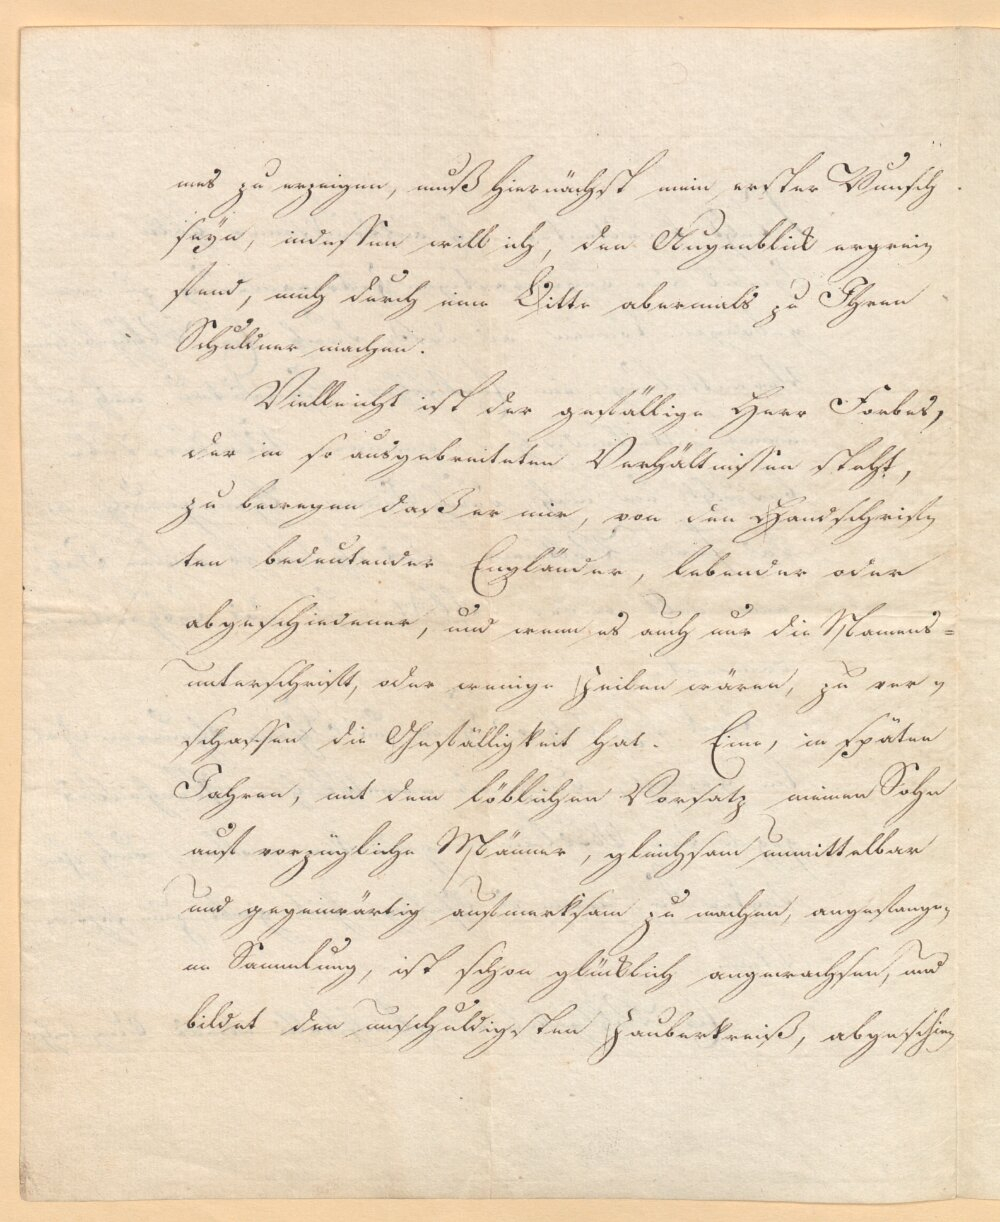 mes zu erzeigen, muß hiernächst mein erster Wunsch
seyn, indessen will ich, den Augenblick ergrei-
fend, mich durch eine Bitte abermals zu Ihren
Schuldner machen.
Vielleicht ist der gefällige Herr Forbes,
der in so ausgebreiteten Verhältnissen steht,
zu bewegen daß er mir, von den Handschrif-
ten bedeutender Engländer, lebender oder
abgeschiedener, und wenn es auch nur die Namens=
unterschrift, oder wenige Zeilen wären, zu ver-
schaffen die Gefälligkeit hat. Eine, in späten
Jahren, mit dem löblichen Vorsatz meinen Sohn
auf vorzügliche Männer, gleichsam unmittelbar
und gegenwärtig aufmerksam zu machen, angefange-
ne Sammlung, ist schon glücklich angewachsen, und
bildet den unschuldigsten Zauberkreiß, abgeschie-